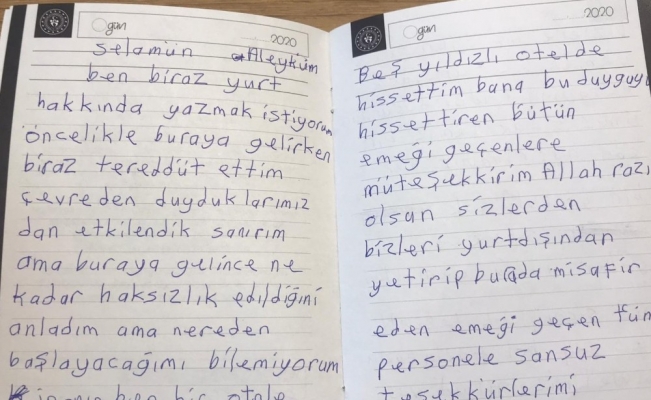 gün
2020
selamün Aleyküm
ben biraz yurt
hakkında yazmak istiyorum
öncelikle buraya gelirken
biraz tereddüt ettim
çevreden duyduklarımız
dan etkilendik sanırım
ama buraya gelince ne
kadar haksızlık edildiğini
anladım ama nereden
başlayacağımı bilemiyorum
ben bir otele
gün
2020
Beş yıldızlı otelde
hissettim bana bu duyguyu
hissettiren bütün
emeği geçenlere
müteşekkirim Allah razı
olsun sizlerden
bizleri yurtdışından
getirip burada misafir
eden emeği geçen tüm
personele sonsuz
teşekkürlerimi